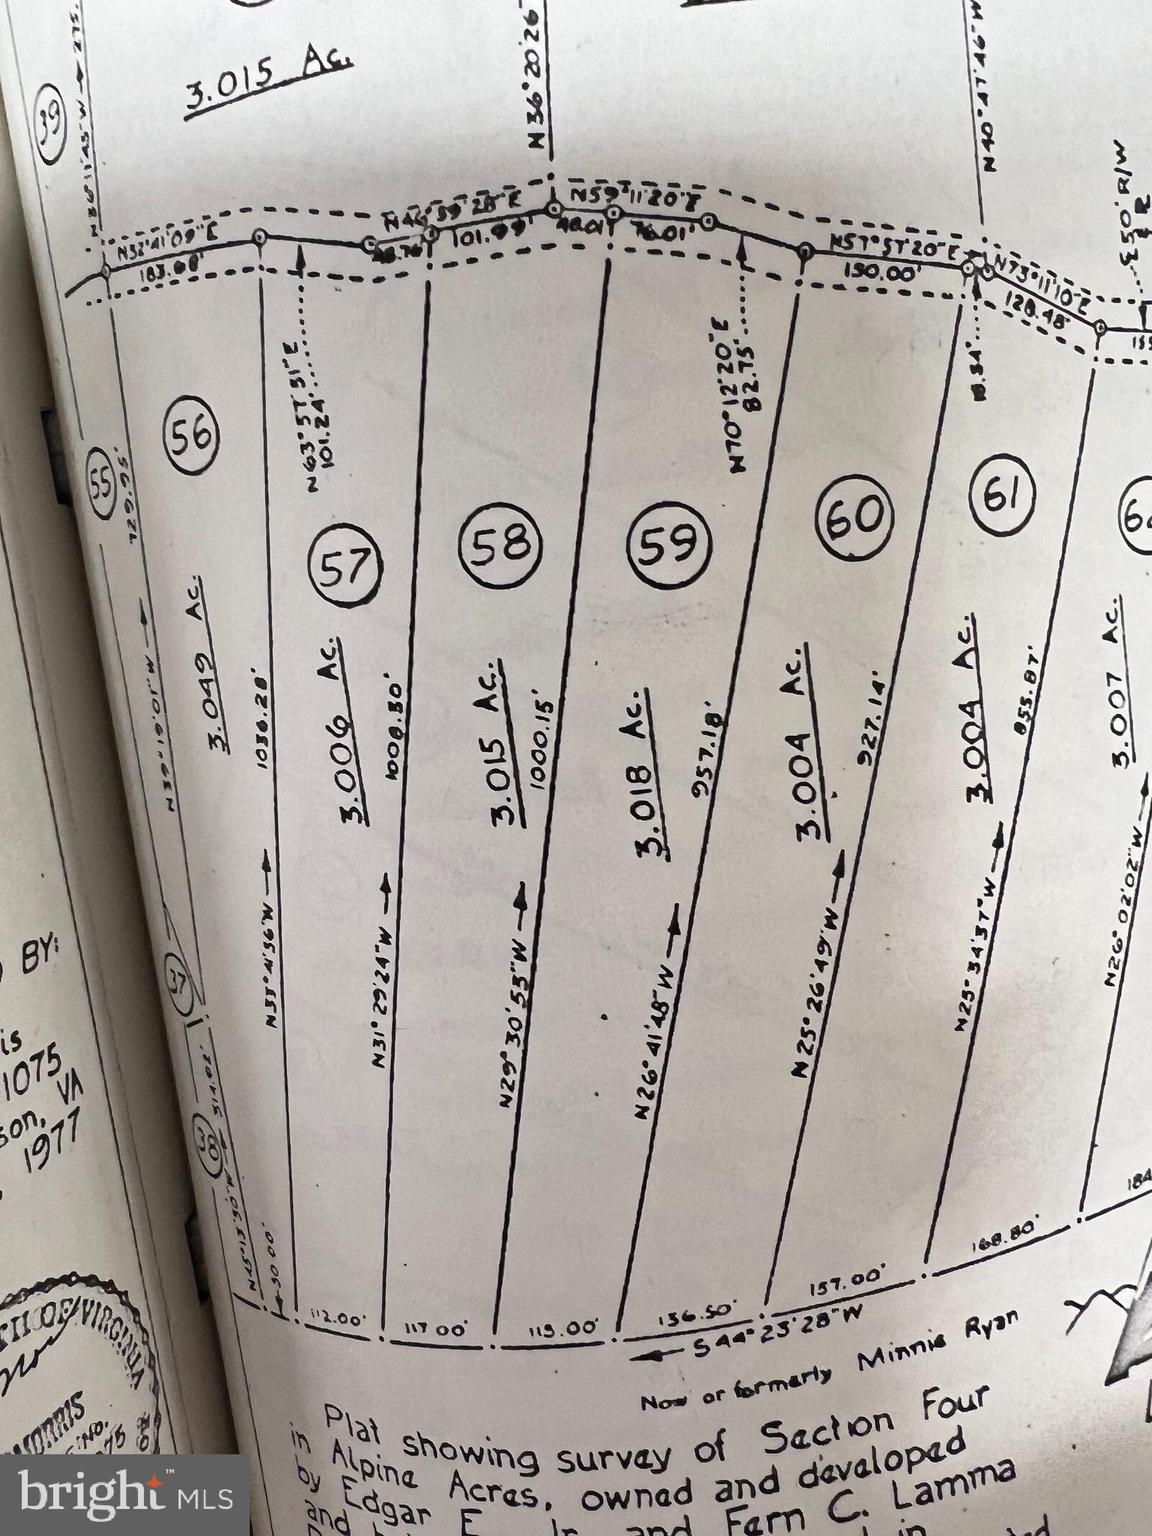 3.015 Ac.
39
N36°11'45"W → 275.
N36°20'26"
N40°47'46"W
£50' R/W
N52°41'09"E
183.00'
N46°59'28"E
101.99'
N59°11'20"E
76.01'
N57°57'20"E
150.00'
N73°11'10"E
128.48'
18.34'
N63°57'51"E
101.24'
N70°12'20"E
82.75'
55
56
57
58
59
60
61
729.95'
N39°19'01"W
3.049 Ac.
1036.28'
3.006 Ac.
1008.30'
3.015 Ac.
1000.15'
3.018 Ac.
957.18'
3.004 Ac.
927.14'
3.004 Ac.
855.87'
3.007 Ac.
N33°41'36"W
N31°29'24"W
N29°30'53"W
N26°41'48"W
N25°26'49"W
N25°34'37"W
N26°02'02"W
37
38
30.00'
112.00'
117.00'
115.00'
136.50'
157.00'
168.80'
184
S44°23'28"W
Now or formerly Minnie Ryan
Plat showing survey of Section Four
in Alpine Acres, owned and developed
by Edgar E. Jr. and Fern C. Lamma
and
BY:
is
1075
son, VA
1977
OF VIRGINIA
MORRIS
NO.
bright™ MLS